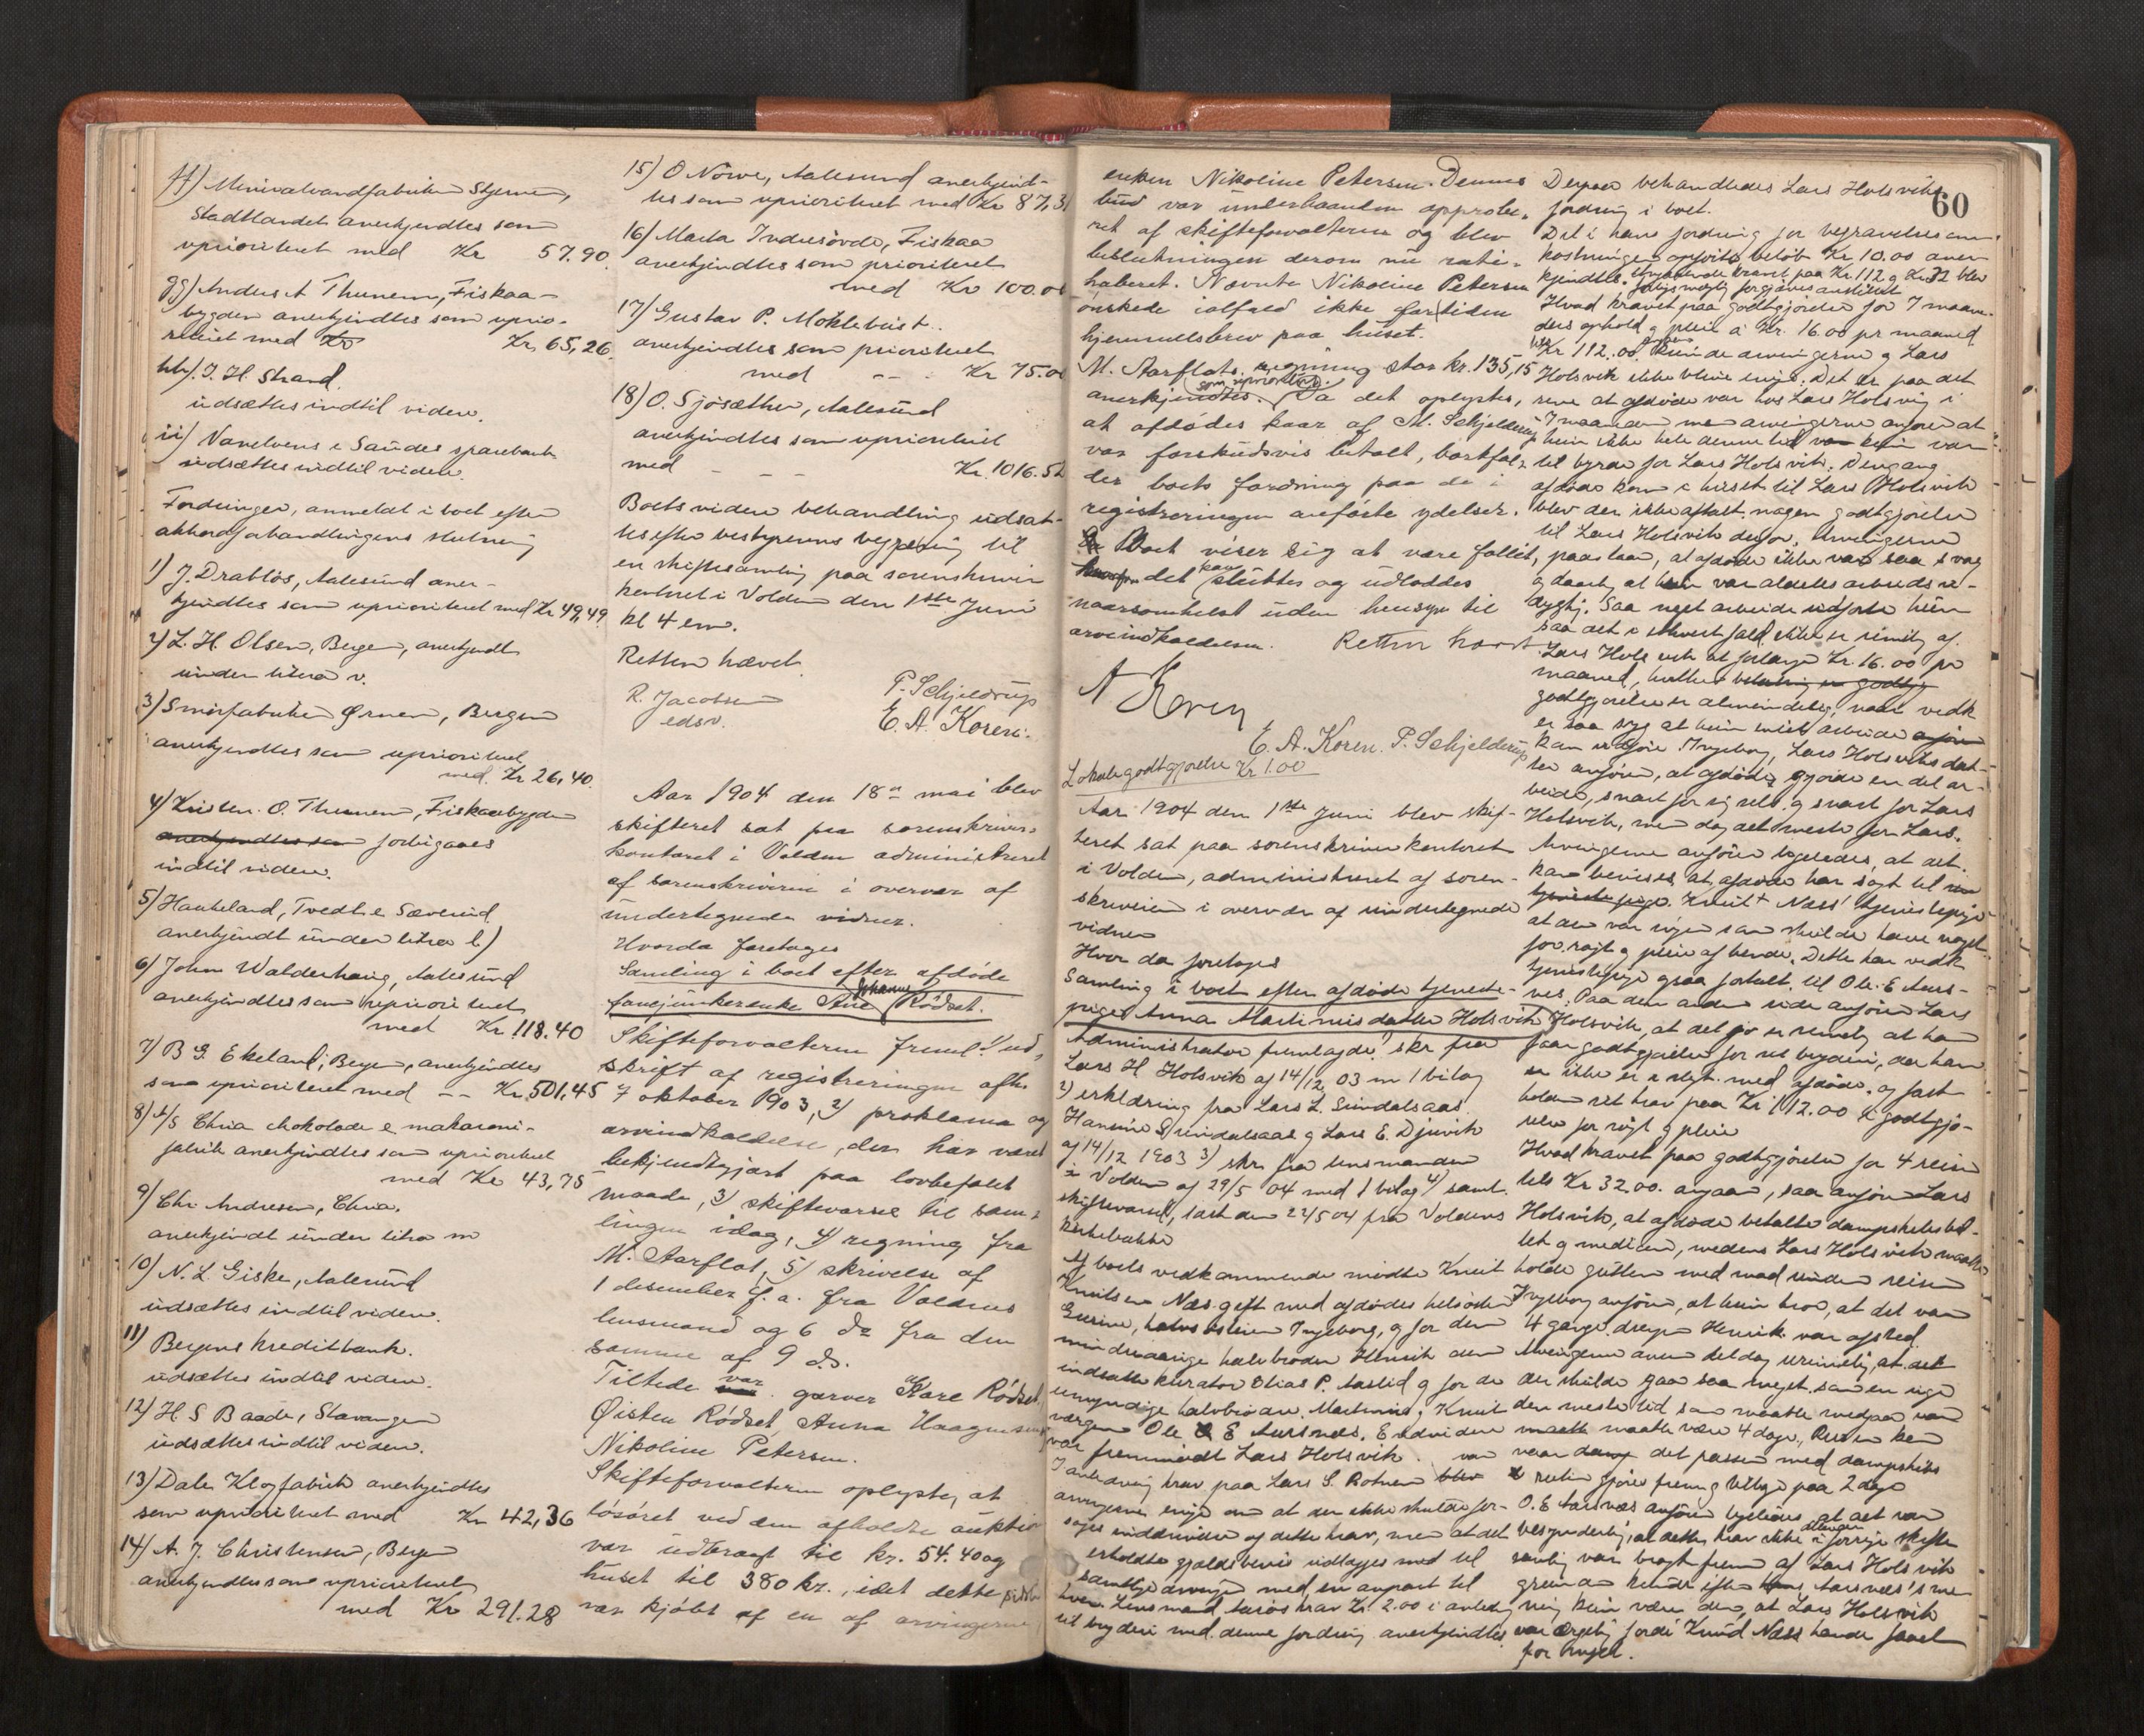 ff) Mineralvandfabriken Stjernen,
Stadtlandet anerkjendtes som
uprioriteret med Kr 57.90
gg) Anders A Thunem, Fiskaa-
bygden anerkjendtes som uprio-
riteret med Kr Kr. 65,26
hh). J. H. Strand.
udsættes indtil videre.
ii) Vanelvens & Sandes sparebank
udsættes indtil videre.
Fordringer, anmeldt i boet efter
akkordforhandlingens slutning
1) J. Drabløs, Aalesund aner-
kjendtes som uprioriteret med Kr 49,49
2) L. H. Olsen, Bergen, anerkjendt
under litra v.
3) Smørfabriken Ørnen, Bergen
anerkjendtes som uprioriteret
med Kr 26,40.
4) Kristen O. Thunem, Fiskaabygden
anerkjendtes som forbigaaes
indtil videre.
5) Haukeland, Tvedt & Sæverud
anerkjendt under litra l)
6) John Walderhaug, Aalesund
anerkjendtes som uprioriteret
med Kr. 118.40
7) B G. Ekeland, Bergen, anerkjendtes
som uprioriteret med -- Kr. 501,45
8) A/S Chria chokolade & makaroni-
fabrik anerkjendtes som uprioriteret
med Kr 43,75
9) Chr Andresen, Chria.
anerkjendt under litra m
10) N. L. Giske, Aalesund
udsættes indtil videre.
11) Bergens kreditbank.
udsættes indtil videre.
12) H. S Baade, Stavanger
udsættes indtil videre.
13) Dale Klogfabrik anerkjendtes
som uprioriteret med Kr 42,36
14) A. J. Christensen, Bergen
anerkjendtes som uprioriteret
med Kr 291.28
15) O Nörve, Aalesund anerkjend-
tes som uprioriteret med Kr 87,31
16) Marta Indresövde, Fiskaa
anerkjendtes som prioriteret
med Kr 100.00
17) Gustav P. Moklebust.
anerkjendtes som prioriteret
med -- Kr 75.00
18) O. Sjösæther, Aalesund
anerkjendtes som uprioriteret
med - - - Kr. 1016.52
Boets videre behandling udsat-
tes efter bestyrerens begjæring til
en skiftesamling paa sorenskriver
kontoret i Volden den 1ste Juni
kl 4 em.
Retten hævet.
R. Jacobsen P. Schjeldrup
edsv. E. A. Koren.
Aar 1904 den 18de mai blev
skifteret sat paa sorenskriver-
kontoret i Volden administreret
af sorenskriveren i overvær af
undertegnede vidner.
Hvorda foretoges
Samling i boet efter afdøde
fanejunkerenke Ane Johanne Rödset.
Skifteforvalteren freml. 1/ ud-
skrift af registreringen afh.
7 oktober 1903, 2/ proklama og
arvindkaldelse, der har været
bekjendtgjort paa lovbefalet
maade, 3/ skiftevarsel til sam-
lingen idag, 4/ regning fra
M. Aarflot, 5/ skrivelse af
1 desember f. a. fra Voldens
lensmand og 6 do fra den
samme af 9 ds.
Tilstede var garver Kare Rödset
Øisten Rödset, Anna Haagensen
Nikoline Petersen.
Skifteforvalteren oplyste, at
løsøret ved den afholdte auktion
var udbragt til kr. 54.40 og
huset til 380 kr., idet dette sidste
var kjöbt af en af arvingerne
enken Nikoline Petersen. Dennes
bud var underhaanden approbe-
ret af skifteforvalteren og blev
beslutningen derom nu rati-
haberet. Nævnte Nikoline Petersen
ønskede ialfald ikke for tiden
hjemmelsbrev paa huset.
M. Aarflots regning stor kr. 135,15
anerkjendtes som uprioriteret. Da det oplystes,
at afdödes kaar af M. Schjelderup
var forskudsvis betalt, bortfal-
der boets fordring paa de i
registreringen anførte ydelser.
Da Boet viser sig at være fallit,
hvorfor det kan sluttes og udloddes
naarsomhelst uden hensyn til
arveindkaldelsen. Retten hævet
A Koren
E. A. Koren. P. Schjelderup
Lokalegodtgjørelse Kr 1.00
Aar 1904 den 1ste Juni blev skif-
teret sat paa sorenskriverkontoret
i Volden, administreret af soren-
skriveren i overvær af undertegnede
vidner
Hvor da foretoges
Samling i boet efter afdøde tjeneste-
pige Anna Martinusdatter Holsvik
Administrator fremlagde 1/ skr fra
Lars H Holsvik af 14/12 03 m 1 bilag
2) erklæring fra Lars L. Sundalsaas
Hansine Sundalsaas og Lars E. Djuvik
af 14/12 1903 3) skr. fra lensmanden
i Volden af 29/5 04 med 1 bilag 4/ samt
skiftevarsel, læst den 22/5 04 fra Voldens
kirkebakke
I boets vedkommende mødte Knut
Knutsen Næs gift med afdødes helsøster
Gurine, halvsøsteren Ingeborg, og for den
mindreaarige halvbroder Henrik den
indsatte kurator Elias P. Aaslid og for de
umyndige halvbrødre Martinus og Knut
værgen Ole E Aursnes. Endvidere
var fremmødt Lars Holsvik.
I anledning krav paa Lars S. Rotnen blev
arvingerne enige om at der ikke skulde for-
søges inddrivelse af dette krav, men at det
erholdte gjældsbevis udlægges med til
samtlige arvinger med en anpart til
hver. Lensmand Aarøs krav Kr. 2.00 i anledning
til bryderi med denne fordring anerkjendtes
Derpaa behandledes Lars Holsviks
60
fordring i boet.
Det i hans fordring for begravelsesom-
kostninger opførte beløb Kr 10.00 aner-
kjendtes. Angaaende kravet paa Kr. 112 og Kr. 32 blev
forligsmægling forgjæves anstillet
Hvad kravet paa godtgjørelse for 7 maane-
ders ophold og pleie á Kr. 16.00 pr maaned
Kr 112.00 kunde arvingerne og Lars
Holsvik ikke blive enige. Det er paa det
rene at afdøde var hos Lars Holsvig i
7 maaneder men arvingerne anfører at
hun ikke hele denne tid var hun var
til byrde for Lars Holsvik. Dengang
afdøde kom i huset til Lars Holsvik
blev der ikke aftalt nogen godtgjørelse
til Lars Holsvik derfor. Arvingerne
paastaar, at afdøde ikke var saa svag
og daarlig at hun var aldeles arbeidsu-
dygtig. Saa meget arbeide udførte hun
saa det i ethvert fald ikke er rimelig af
Lars Holsvik at forlange Kr. 16.00 pr
maaned, hvilken betaling er godtgj
godtgjørelse er almindelig, naar vedk
er saa syg at hun intet arbeide
kan udføre. Ingeborg, Lars Holsviks dat-
ter anfører, at afdøde gjorde en del ar-
beide, snart for sig selv og snart for Lars
Holsvik, men dog det meste for Lars.
Arvingerne anfører ligeledes, at det
kan bevises, at afdøde har sagt til
tjeneste pige Knut Næss' tjenestepige
at der var ingen som skulde have noget
for røgt og pleie af hende. Dette har vedk
tjenestepige ogsaa fortalt til Ole E Aurs-
nes. Paa den anden side anfører Lars
Holsvik, at det jo er rimelig at han
faar godtgjørelse for sit bryderi, da han
er ikke er i slegt med afdøde, og fast-
holder sit krav paa Kr. 112.00 i godtgjø-
relse for røgt og pleie
Hvad kravet paa godtgjørelse for 4 reiser
tils Kr 32.00. angaar, saa anfører Lars
Holsvik, at afdøde betalte dampskibsbil-
let og medicin, medens Lars Holsvik maatte
holde gutten med mad under reisen
Ingeborg anfører, at hun tror, at det var
4 gange drengen Henrik var afsted.
Arvingerne anser det dog urimelig, at det
der skulde gaa saa meget som en uge
den meste tid som maatte medgaa var
maatte være 4 dage. Reisen kan
naar det passer med dampskibs
ruten gjøre frem og tilbage paa 2 dage
O. E Aursnes anfører ligeledes, at det var
besynderlig, at dette krav ikke i forrige skifte
samling var bragt frem af Lars Holsvik
grunden hertil efter Aursnes's me-
ning kun være den, at Lars Holsvik
var ærgerlig fordi Knud Næss havde faaet
for meget.